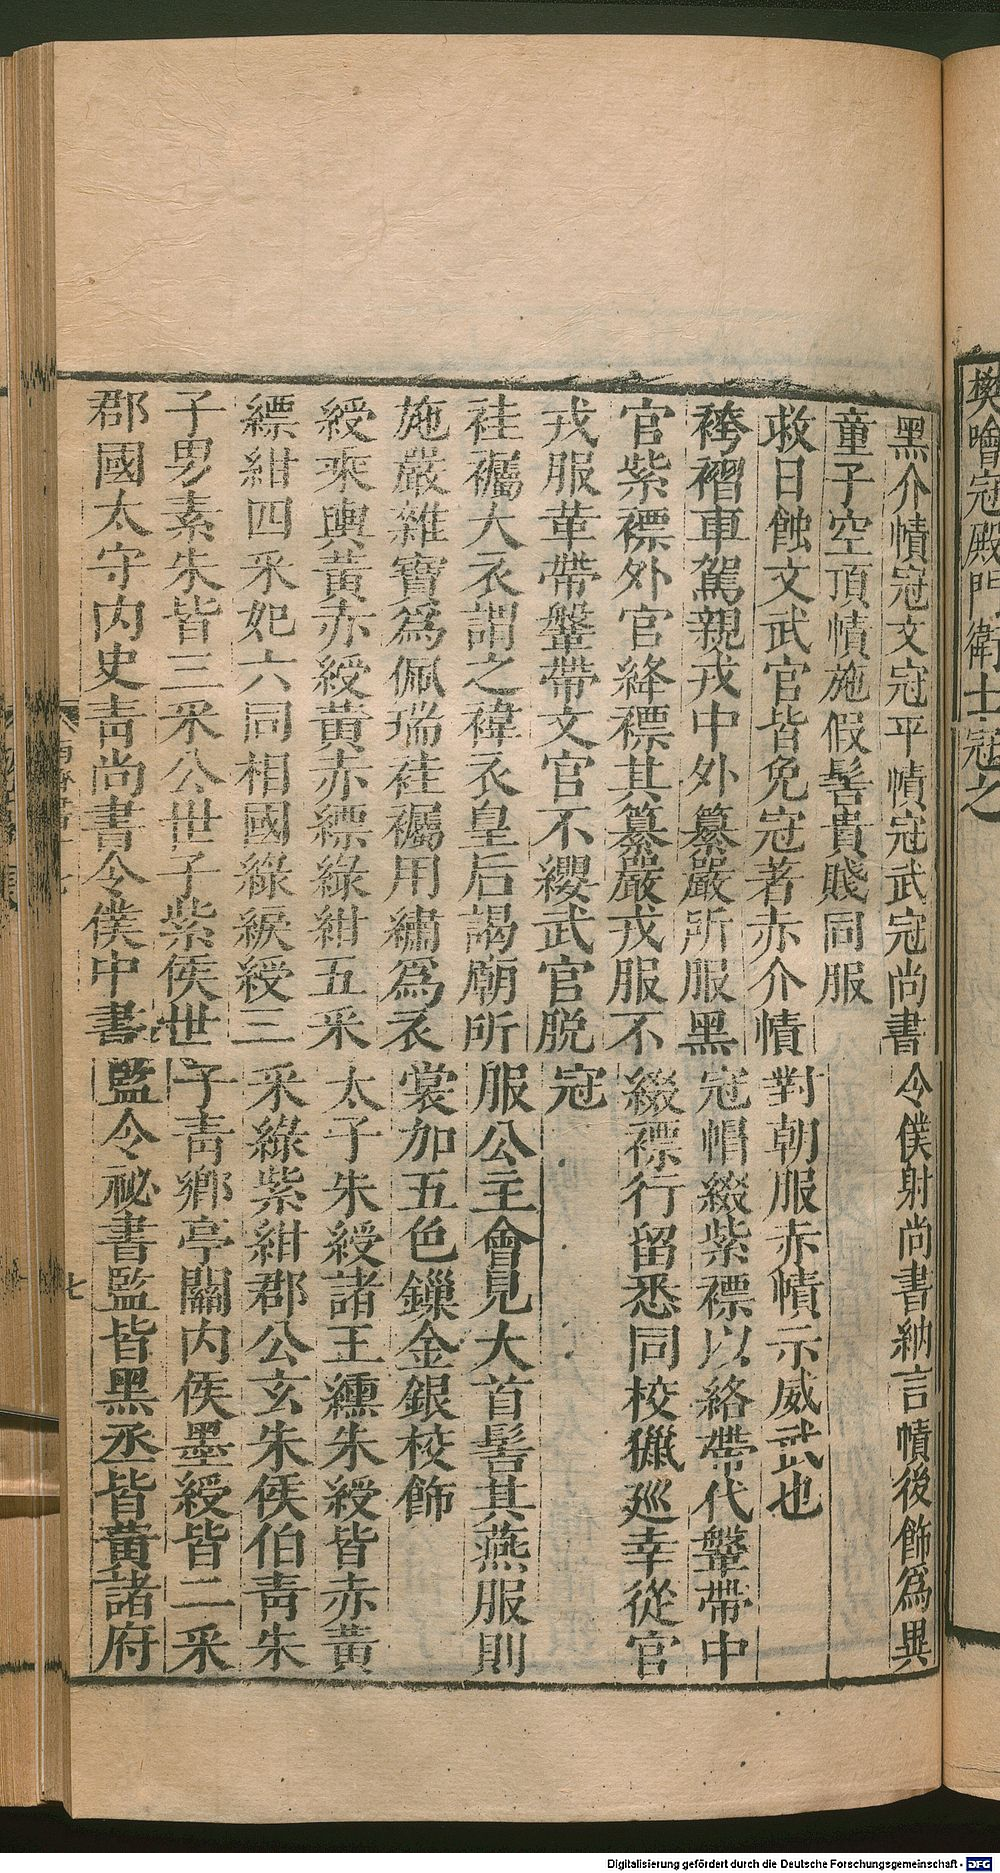 樊噲冠殿門衛士冠之
黑介幘冠文冠平幘冠武冠尚書令僕射尚書納言幘後飾爲異
童子空頂幘施假髻貴賤同服
救日蝕文武官皆免冠著赤介幘對朝服赤幘示威武也
袴褶車駕親戎中外纂嚴所服黑冠帽綴紫褾以絡帶代鞶帶中
官紫褾外官絳褾其纂嚴戎服不綴褾行留悉同校獵巡幸從官
戎服革帶鞶帶文官不纓武官脫冠
袿𧞫大衣謂之褘衣皇后謁廟所服公主會見大首髻其燕服則
施嚴雜寶爲佩瑞袿𧞫用繡爲衣裳加五色鏁金銀校飾
綬乘輿黃赤綬黃赤縹綠紺五采太子朱綬諸王纁朱綬皆赤黃
縹紺四采妃六同相國綠綟綬三采綠紫紺郡公玄朱侯伯靑朱
子男素朱皆三采公世子紫侯世子靑鄉亭關內侯墨綬皆二采
郡國太守內史靑尚書令僕中書監令祕書監皆黑丞皆黃諸府
七
Digitalisierung gefördert durch die Deutsche Forschungsgemeinschaft - DFG